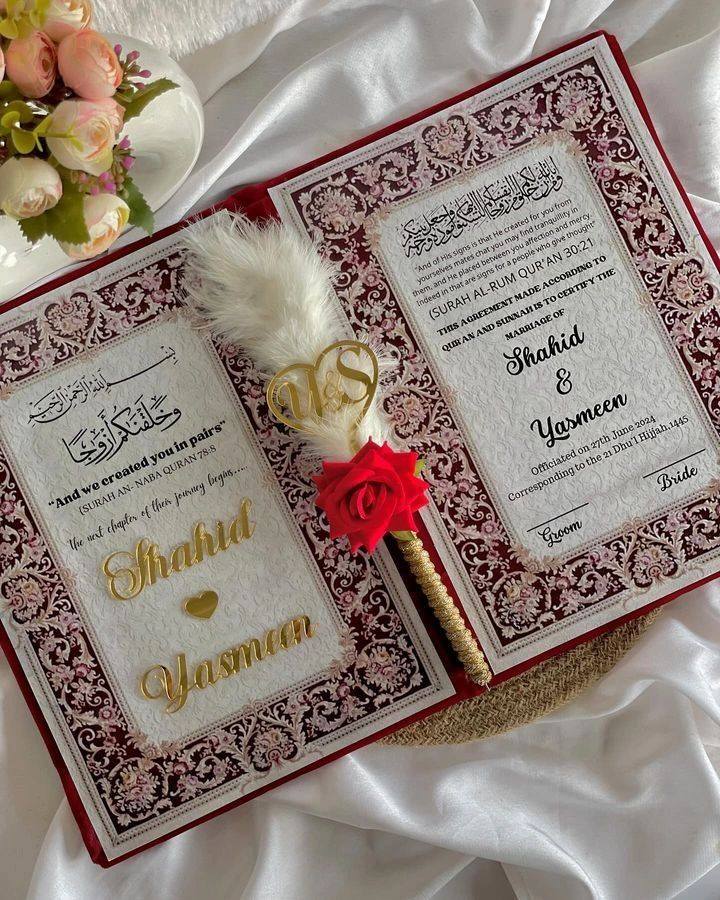 بسم الله الرحمن الرحيم
وخلقنكم أزوجا
"And we created you in pairs"
(SURAH AN- NABA QURAN 78-8
the next chapter of their journey begins.....
Shahid
Yasmeen
&S
"And of His signs is that He created for you from
yourselves mates that you may find tranquility in
them, and He placed between you affection and mercy.
Indeed in that are signs for a people who give thought"
(SURAH AL-RUM QUR'AN 30:21
THIS AGREEMENT MADE ACCORDING TO
QUR'AN AND SUNNAH IS TO CERTIFY THE
MARRIAGE OF
Shahid
&
Yasmeen
Officiated on 27th June 2024
Corresponding to the 21 Dhu'l Hijjah,1445
Groom
Bride